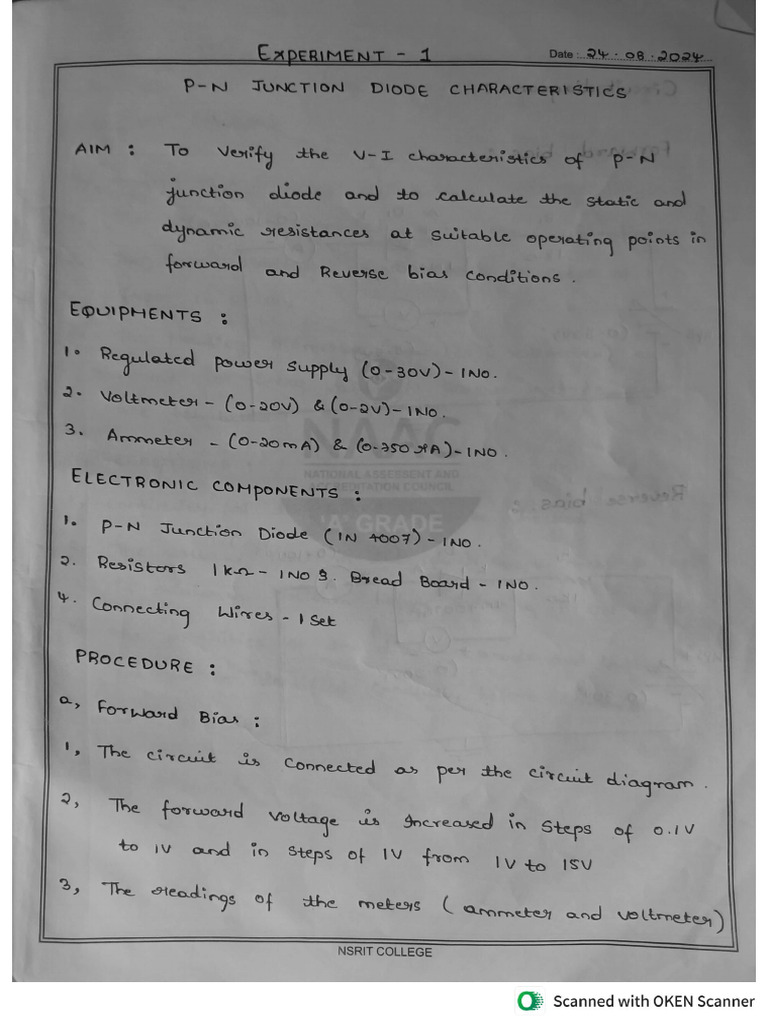 EXPERIMENT - 1
Date : 24 . 08 . 2024
P-N JUNCTION DIODE CHARACTERISTICS
AIM : To verify the V-I characteristics of P-N
junction diode and to calculate the static and
dynamic resistances at suitable operating points in
forward and Reverse bias conditions .
EQUIPMENTS :
1. Regulated power supply (0-30V) - 1NO.
2. Voltmeter - (0-20V) & (0-2V) - 1NO.
3. Ammeter - (0-20mA) & (0-750 μA) - 1NO.
NAAC
NATIONAL ASSESSMENT AND
ACCREDITATION COUNCIL
'A' GRADE
ELECTRONIC COMPONENTS :
1. P-N Junction Diode (IN 4007) - 1NO.
2. Resistors 1KΩ - 1NO 3. Bread Board - 1NO.
4. Connecting Wires - 1 Set
PROCEDURE :
a, Forward Bias :
1, The circuit is connected as per the circuit diagram .
2, The forward voltage is increased in steps of 0.1V
to 1V and in steps of 1V from 1V to 15V
3, The readings of the meters (ammeter and voltmeter)
NSRIT COLLEGE
Scanned with OKEN Scanner